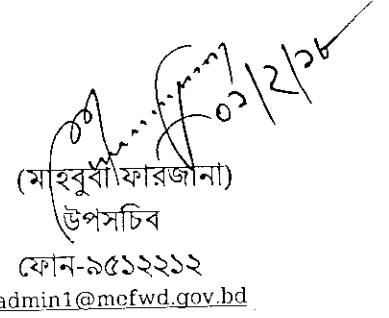 ০১/২/১৮
(মাহবুবা ফারজানা)
উপসচিব
ফোন-৯৫১২২১২
admin1@mefwd.gov.bd